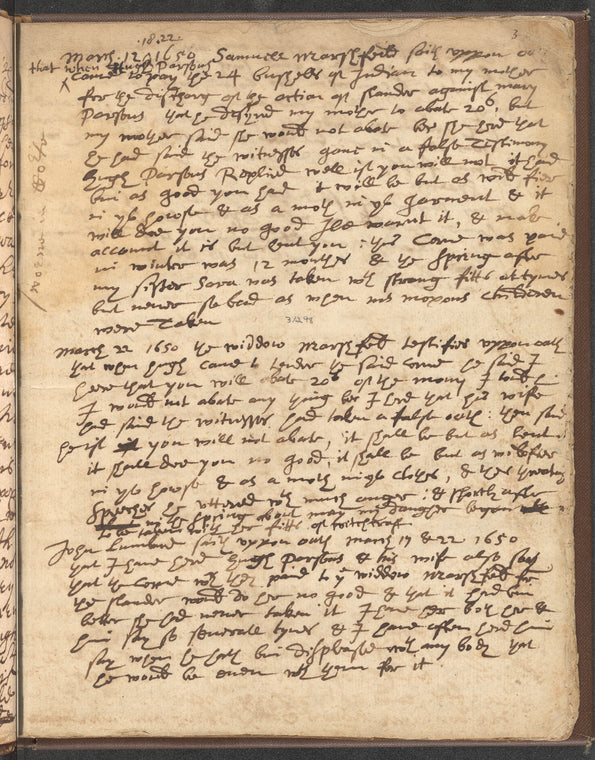 .18.22.
3
March 22 1650 Samuell Marshfeild saith uppon oath
that when Hugh Parsons
came to pay the 24 bushells of Indian to my mother
for the discharg of the action of slander against mary
Parsons that he desyred my mother to abate 20s, but
my mother said she would not abate bec she herd that
he had said the witnesses gave in a false Testimony
hugh Parsons Replied well if you will not it had
bin as good you had it will be but as wild fier
in yr howse & as a moth in yr garment & it
will doe you no good Ile warrant it, & make
account it is but lent you : this Corne was paid
in winter was 12 months & the Spring after
my sister Sara was taken wth strong fitts at tymes
but never so bad as when mr moxons Children
were Taken
March 22 1650 the widdow Marshfeild testifies uppon oath
that when hugh came to tender the said corne he said I
here that you will abate 20s of the mony I tould him
I would not abate any thing bec I herd that his wife
had said the witnesses had taken a false oath : then said
he if you will not abate, it shall be but as lent
it shall doe you no good, it shall be but as wildfier
in yr howse & as a moth in yr clothes, & thes threatning
Speeches he uttered wth much anger : & shortly after
in the spring about may my daughter began
to be taken with her fitts of witchcraft
John Lumbard saith uppon oath March 17 & 22 1650
that I have herd Hugh Parsons & his wife also say
that the corne wch they paid to ye widdow Marshfeild for
the slander would do her no good & that it had bin
better she had never taken it I have herd both her &
him say so severall tymes & I have often herd him
say when he hath bin displeased with any body that
he would be even wth them for it